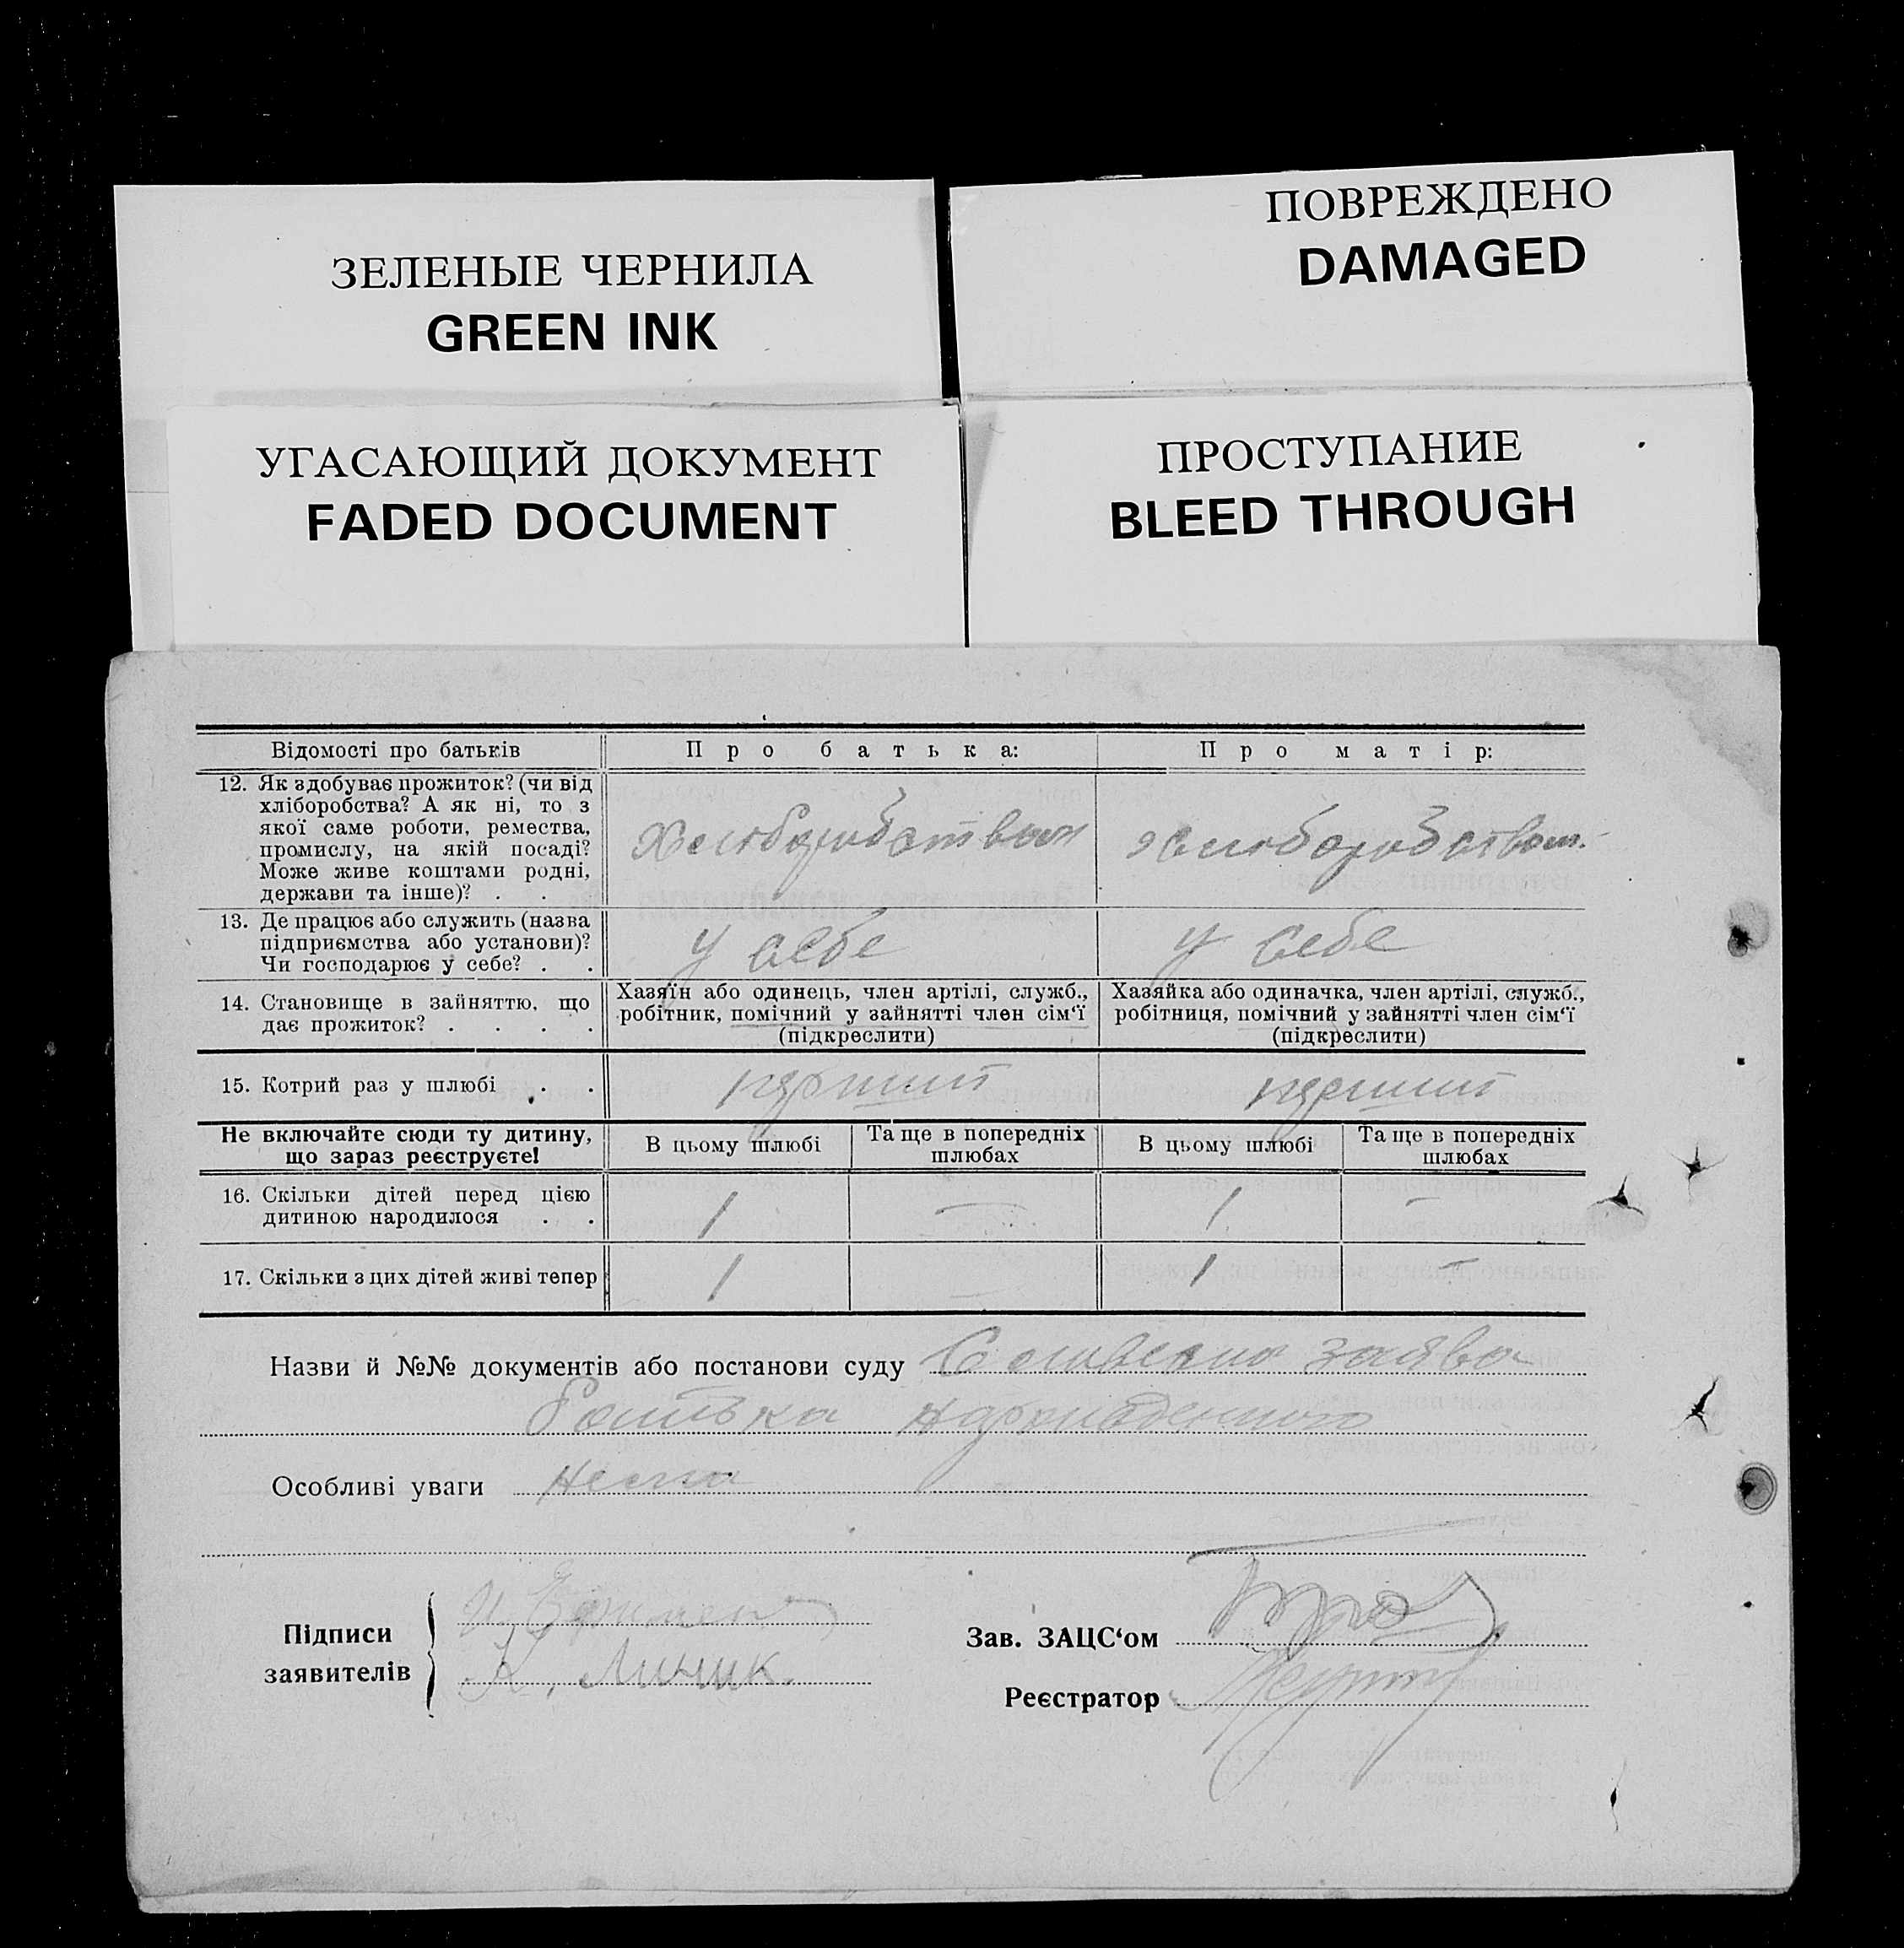 ЗЕЛЕНЫЕ ЧЕРНИЛА
GREEN INK
ПОВРЕЖДЕНО
DAMAGED
УГАСАЮЩИЙ ДОКУМЕНТ
FADED DOCUMENT
ПРОСТУПАНИЕ
BLEED THROUGH
Відомості про батьків
Про батька:
Про матір:
12. Як здобуває прожиток? (чи від
хліборобства? А як ні, то з
якої саме роботи, ремества,
промислу, на якій посаді?
Може живе коштами родні,
держави та інше)? . . .
13. Де працює або служить (назва
підприємства або установи)?
Чи господарює у себе? . .
у себе
у себе
14. Становище в зайняттю, що
дає прожиток? . . . .
Хазяїн або одинець, член артілі, служб.,
робітник, помічний у зайнятті член сім‘ї
(підкреслити)
Хазяйка або одиначка, член артілі, служб.,
робітниця, помічний у зайнятті член сім‘ї
(підкреслити)
15. Котрий раз у шлюбі . .
перший
перший
Не включайте сюди ту дитину,
що зараз реєструєте!
В цьому шлюбі
Та ще в попередніх
шлюбах
В цьому шлюбі
Та ще в попередніх
шлюбах
16. Скільки дітей перед цією
дитиною народилося . .
1
—
1
—
17. Скільки з цих дітей живі тепер
1
1
—
Назви й №№ документів або постанови суду заява
батька
Особливі уваги нема
Підписи
заявителів
К. Линик.
Зав. ЗАЦС‘ом
Реєстратор